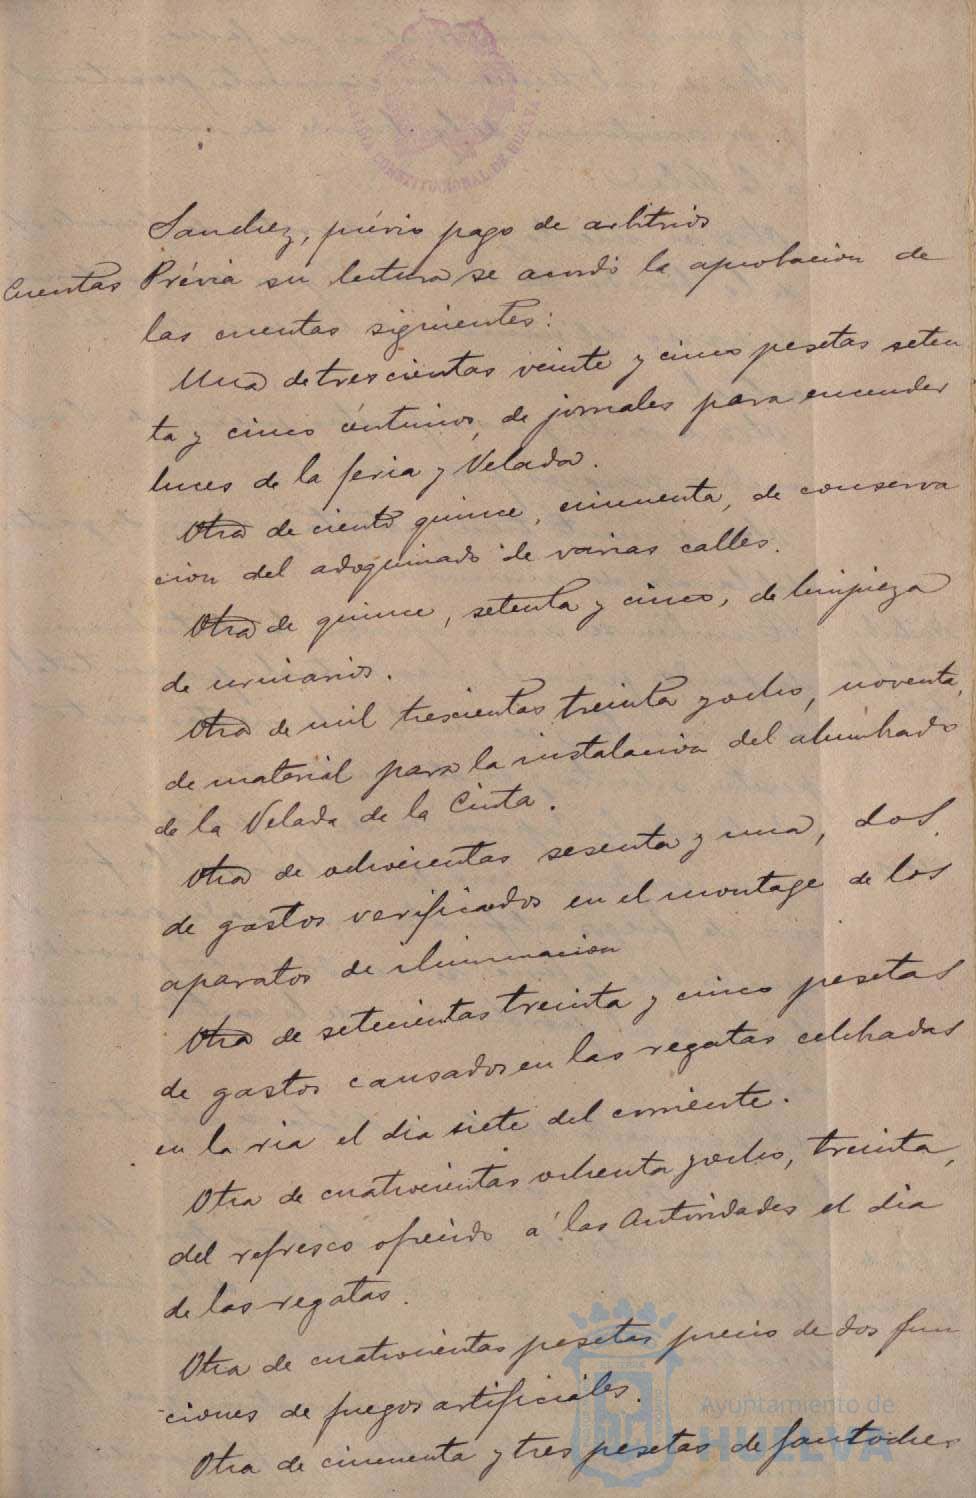 Sanchez, prévio pago de arbitrios
Cuentas Prévia su lectura se acordó la aprobacion de
las cuentas siguientes:
Una de trescientas veinte y cinco pesetas seten
ta y cinco céntimos, de jornales para encender
luces de la feria y Velada.
Otra de ciento quince, cincuenta, de conserva
cion del adoquinado de varias calles.
Otra de quince, setenta y cinco, de limpieza
de urinarios.
Otra de mil trescientas treinta y ocho, noventa,
de material para la instalacion del alumbrado
de la Velada de la Cinta.
Otra de ochocientas sesenta y una, dos,
de gastos verificados en el montage de los
aparatos de iluminacion
Otra de setecientas treinta y cinco pesetas
de gastos causados en las regatas celebradas
en la ria el dia siete del corriente.
Otra de cuatrocientas ochenta y ocho, treinta,
del refresco ofrecido á las Autoridades el dia
de las regatas.
Otra de cuatrocientas pesetas precio de dos fun
ciones de fuegos artificiales.
Otra de cincuenta y tres pesetas de fantoches
Ayuntamiento de
HUELVA